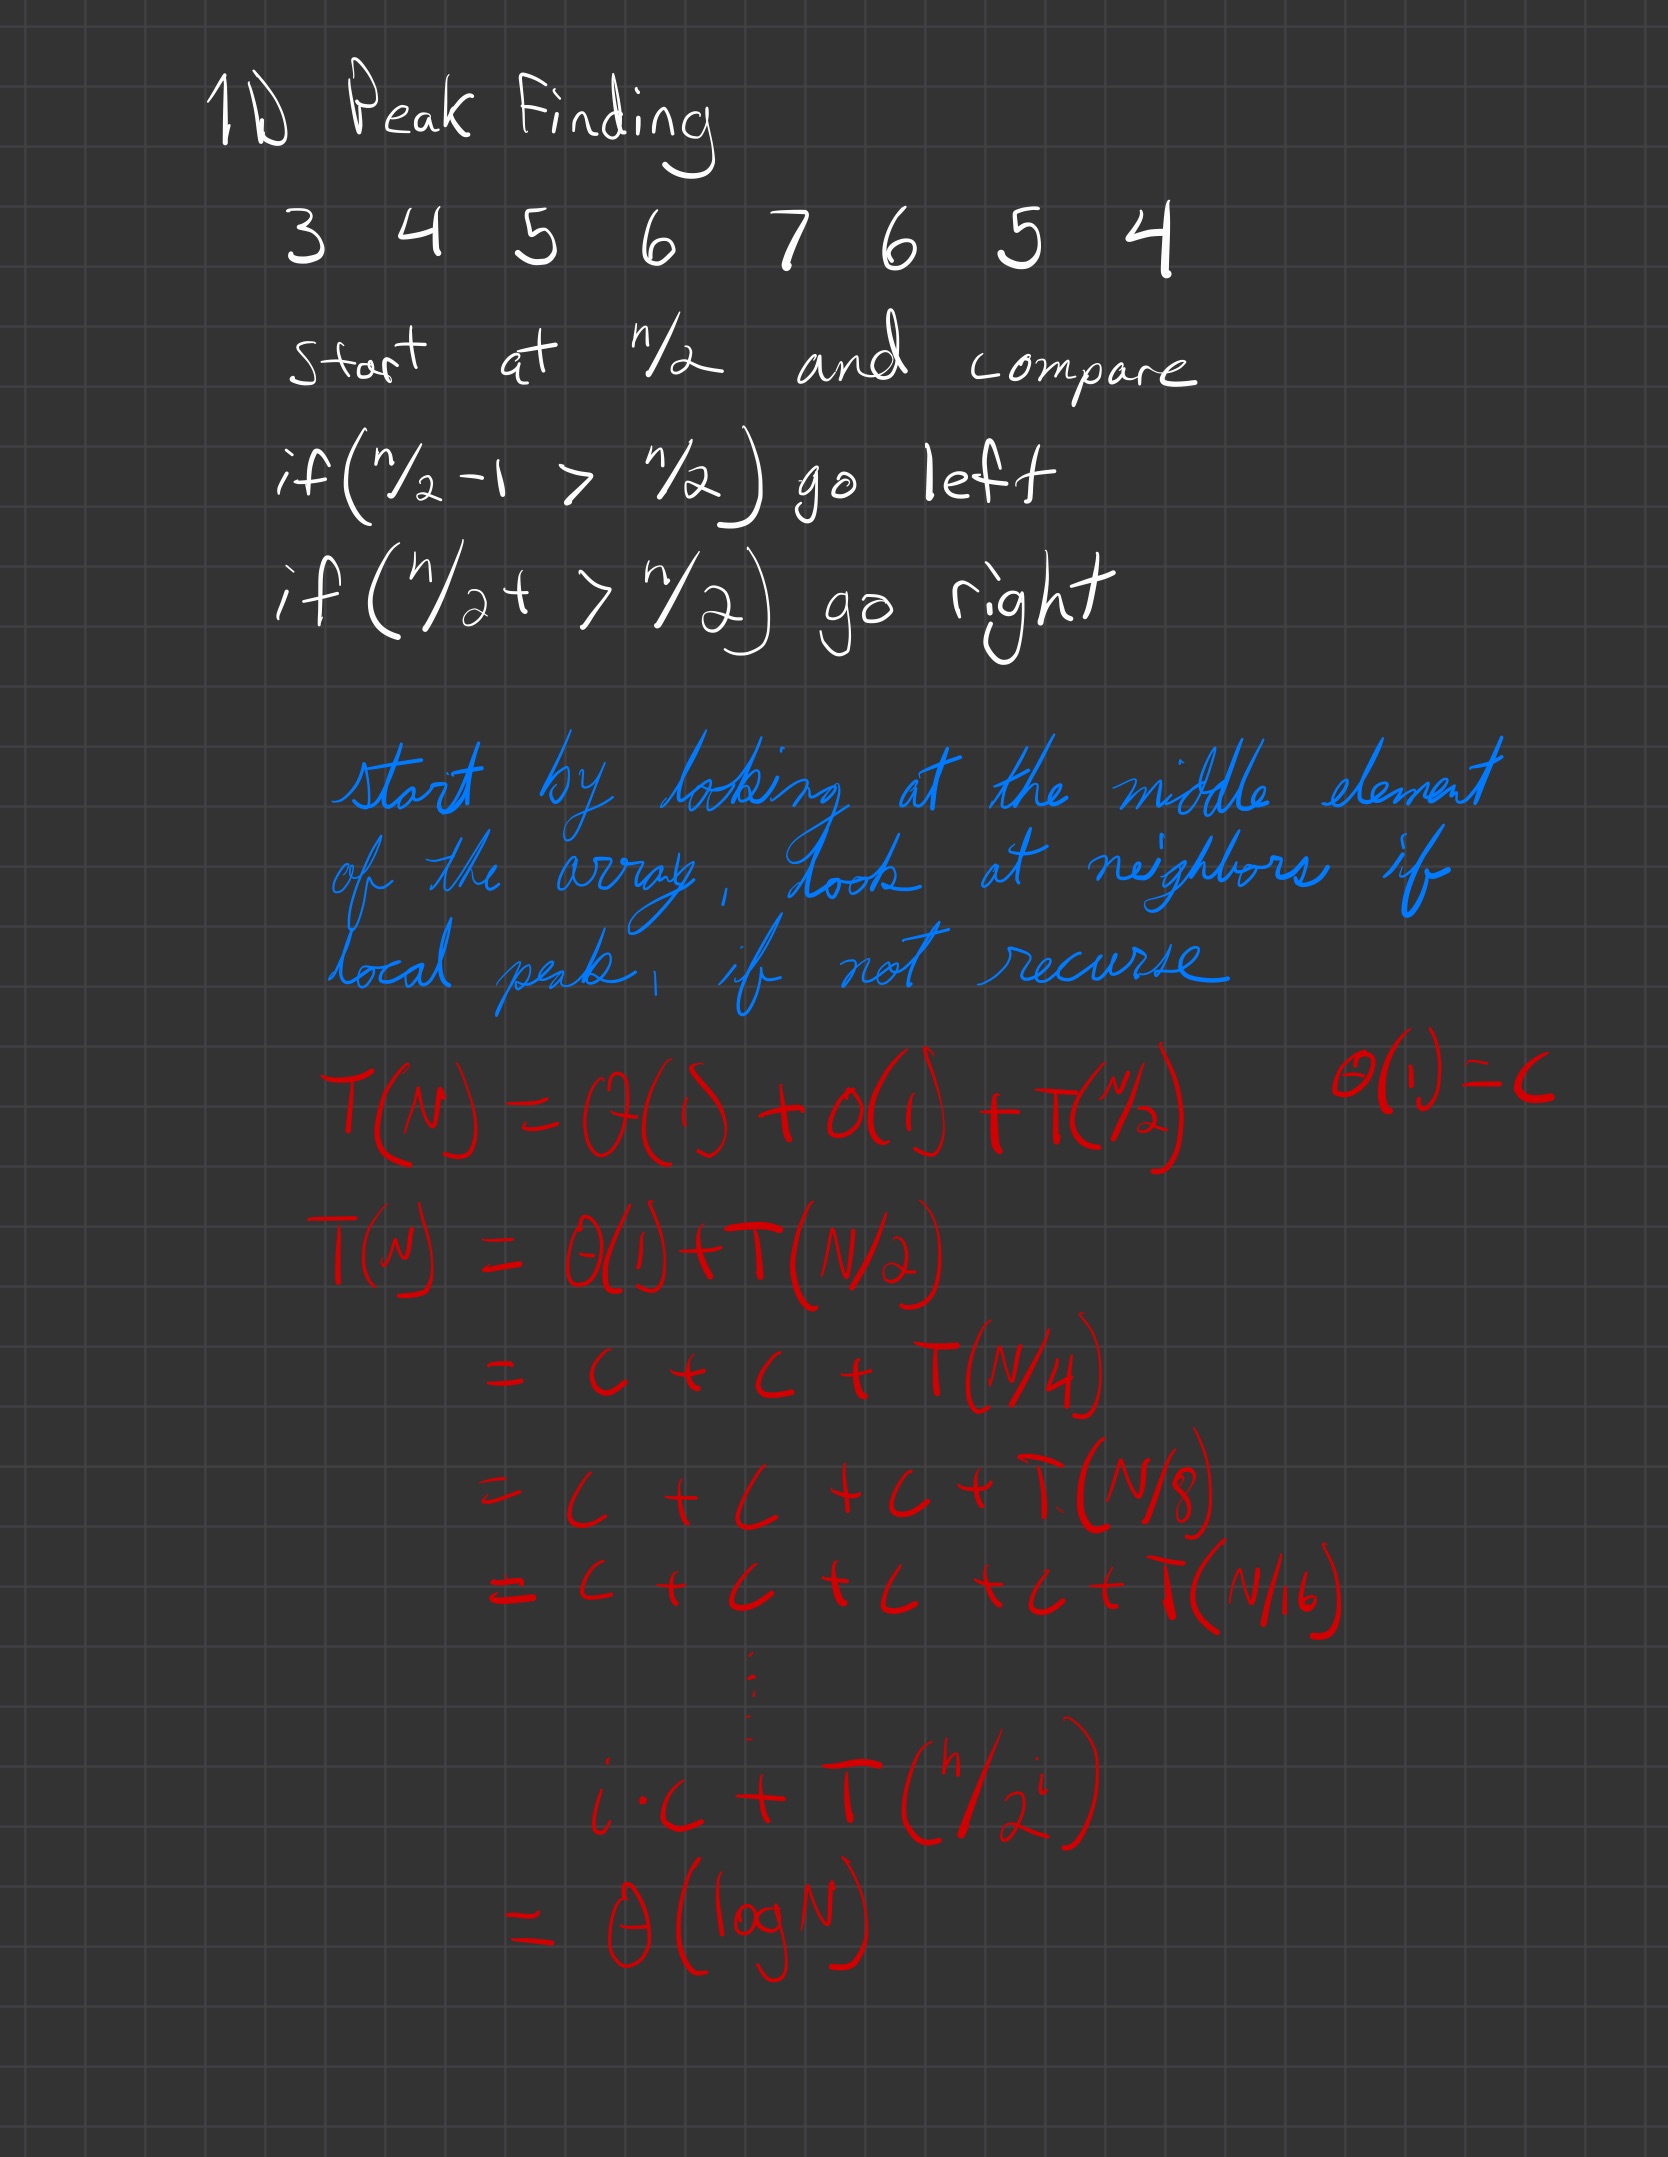 1D Peak Finding
3 4 5 6 7 6 5 4
start at n/2 and compare
if(n/2-1 > n/2) go left
if(n/2+ > n/2) go right
start by looking at the middle element
of the array, Look at neighbors if
local peak, if not recurse
T(N) = θ(1) + O(1) + T(N/2) θ(1) = C
T(N) = θ(1) + T(N/2)
= C + C + T(N/4)
= C + C + C + T(N/8)
= C + C + C + C + T(N/16)
⋮
i · C + T(n/2^i)
= θ(log N)